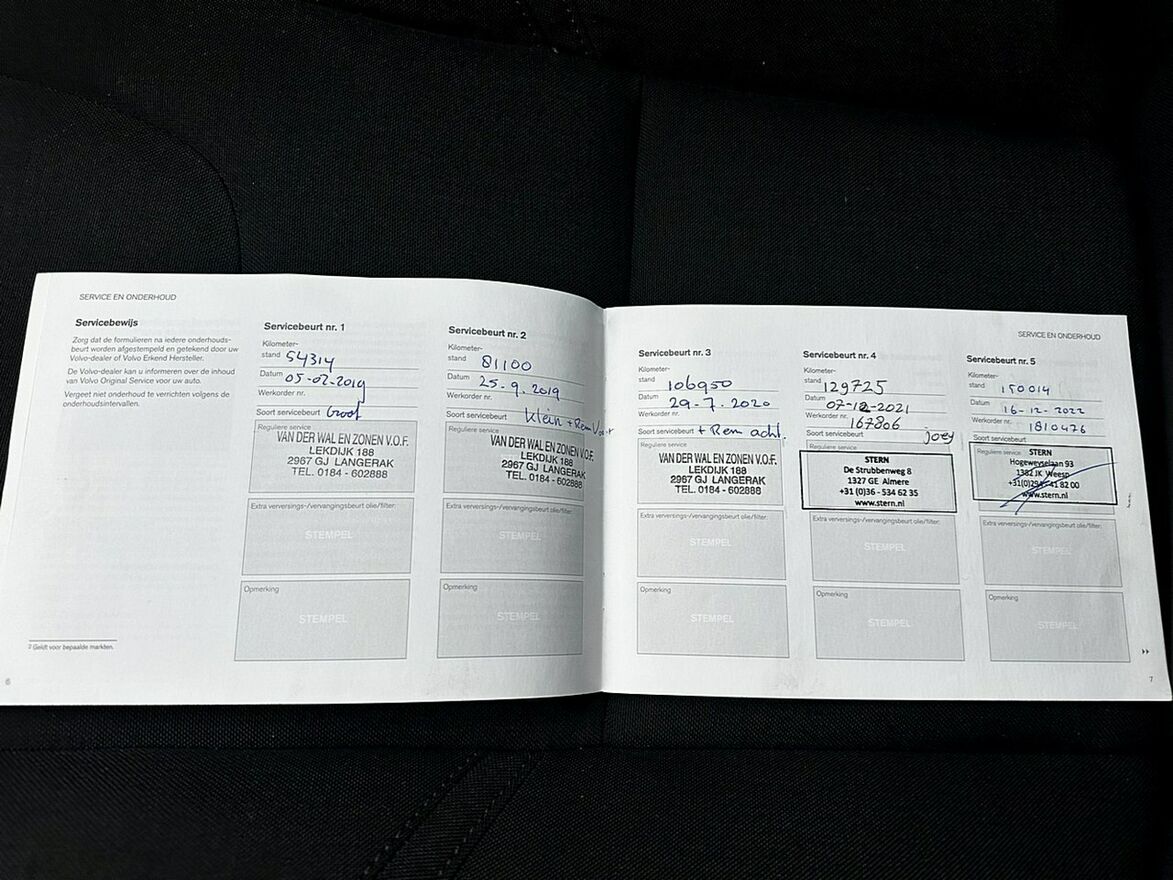 SERVICE EN ONDERHOUD
Servicebewijs
Zorg dat de formulieren na iedere onderhouds-
beurt worden afgestempeld en getekend door uw
Volvo-dealer of Volvo Erkend Hersteller.
De Volvo-dealer kan u informeren over de inhoud
van Volvo Original Service voor uw auto.
Vergeet niet onderhoud te verrichten volgens de
onderhoudsintervallen.
2 Geldt voor bepaalde markten.
6
Servicebeurt nr. 1
Kilometer-
stand 54314
Datum 05-02-2019
Werkorder nr.
Soort servicebeurt Groot
Reguliere service
VAN DER WAL EN ZONEN V.O.F.
LEKDIJK 188
2967 GJ LANGERAK
TEL. 0184 - 602888
Extra verversings-/vervangingsbeurt olie/filter:
STEMPEL
Opmerking
STEMPEL
Servicebeurt nr. 2
Kilometer-
stand 81100
Datum 25-9-2019
Werkorder nr.
Soort servicebeurt klein + Rem
Reguliere service
VAN DER WAL EN ZONEN V.O.F.
LEKDIJK 188
2967 GJ LANGERAK
TEL. 0184 - 602888
Extra verversings-/vervangingsbeurt olie/filter:
STEMPEL
Opmerking
STEMPEL
SERVICE EN ONDERHOUD
Servicebeurt nr. 3
Kilometer-
stand 106950
Datum 29-7-2020
Werkorder nr.
Soort servicebeurt + Rem acht.
Reguliere service
VAN DER WAL EN ZONEN V.O.F.
LEKDIJK 188
2967 GJ LANGERAK
TEL. 0184 - 602888
Extra verversings-/vervangingsbeurt olie/filter:
STEMPEL
Opmerking
STEMPEL
Servicebeurt nr. 4
Kilometer-
stand 129725
Datum 07-12-2021
Werkorder nr. 167806
Soort servicebeurt joey
Reguliere service
STERN
De Strubbenweg 8
1327 GE Almere
+31 (0)36 - 534 62 35
www.stern.nl
Extra verversings-/vervangingsbeurt olie/filter:
STEMPEL
Opmerking
STEMPEL
Servicebeurt nr. 5
Kilometer-
stand 150014
Datum 16-12-2022
Werkorder nr. 1810476
Soort servicebeurt
Reguliere service
STERN
Hogeweyselaan 93
1382 JK Weesp
41 82 00
www.stern.nl
Extra verversings-/vervangingsbeurt olie/filter:
STEMPEL
Opmerking
STEMPEL
7